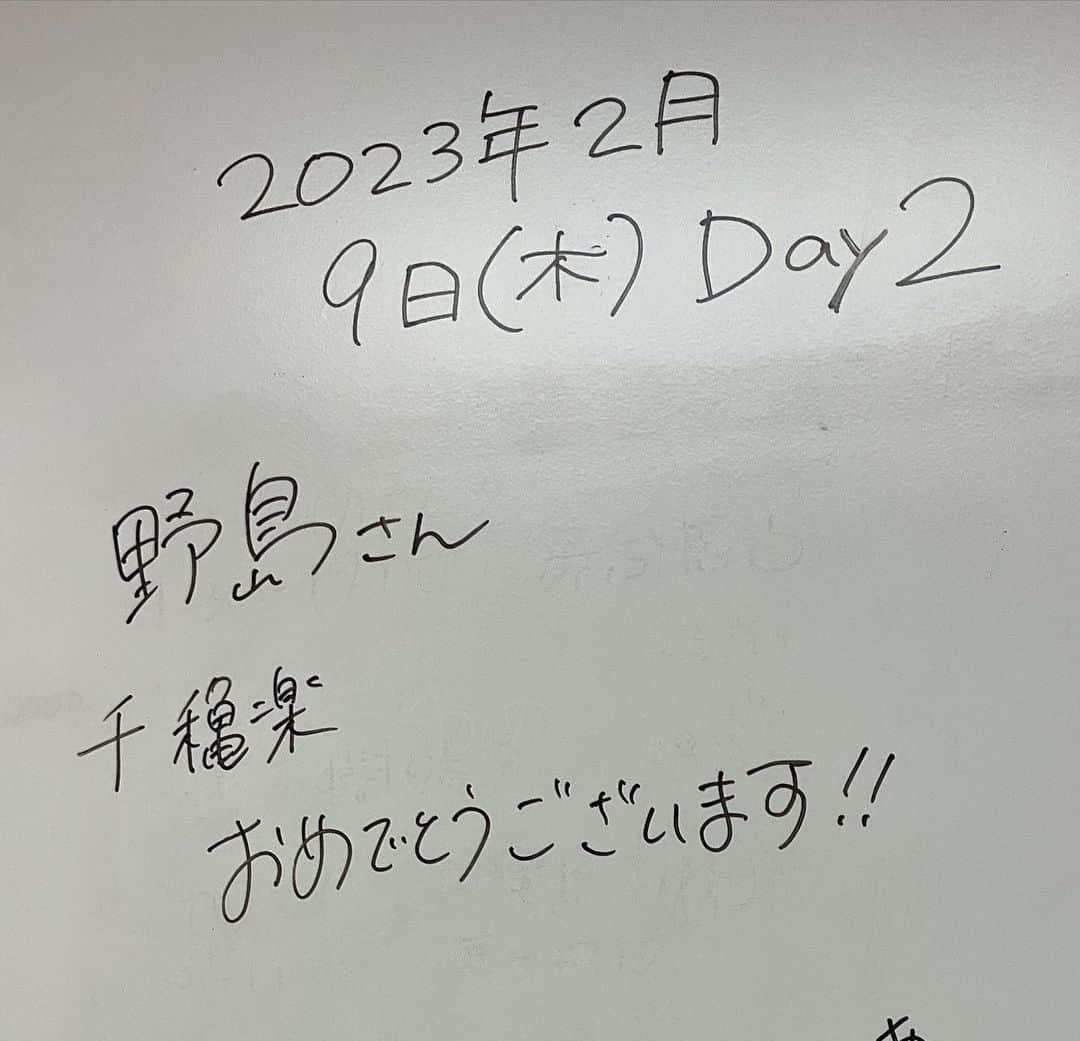 2023年2月
9日(木) Day2
野島さん
千穐楽
おめでとうございます!!